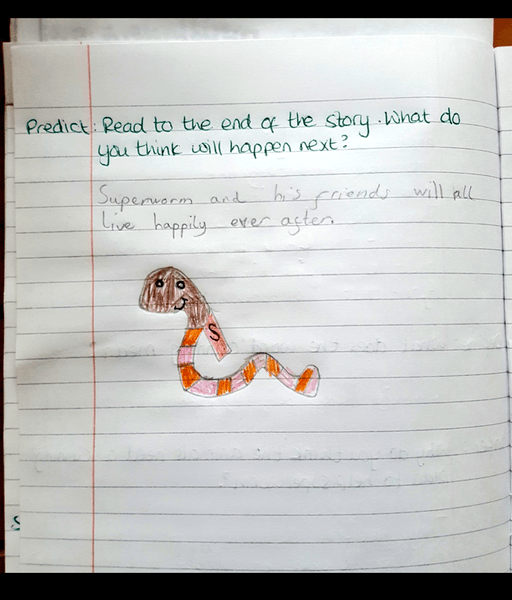 Predict: Read to the end of the story. What do
you think will happen next?
Superworm and his friends will all
live happily ever after.
S
S